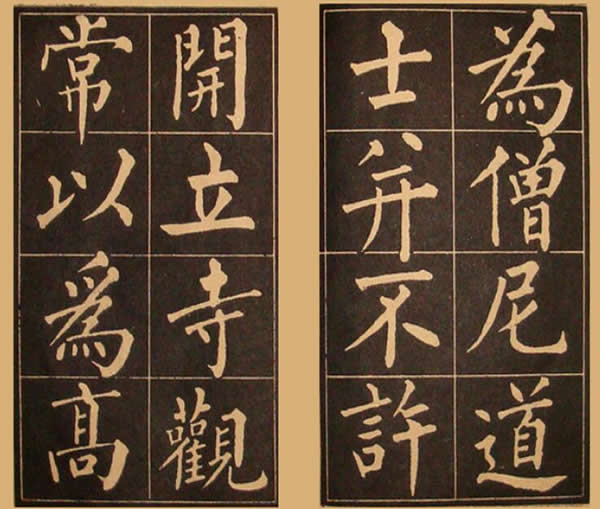 為僧尼道
士并不許
開立寺觀
常以爲高